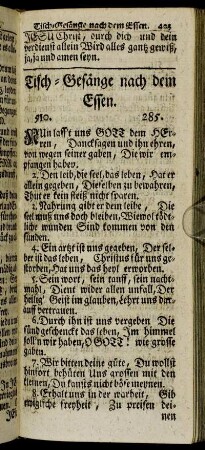 Tisch-Gesänge nach dem Essen. 425
JESU Christ, durch dich und dein
verdienst allein Wird alles gantz gewiß,
ja, ja und amen seyn.
Tisch-Gesänge nach dem
Essen.
910. 285.
NUn lasst uns GOTT dem HEr-
ren, Dancksagen und ihn ehren,
von wegen seiner gaben, Die wir em-
pfangen haben.
2. Den leib, die seel, das leben, Hat er
allein gegeben, Dieselben zu bewahren,
Thut er kein fleiß nicht sparen.
3. Nahrung gibt er dem leibe, Die
seel muß uns doch bleiben, Wiewol tödt-
liche wunden Sind kommen von den
sünden.
4. Ein artzt ist uns gegeben, Der sel-
ber ist das leben, Christus für uns ge-
storben, Hat uns das heyl erworben.
5. Sein wort, sein tauff, sein nacht-
mahl, Dient wider allen unfall, Der
heilig' Geist im glauben, Lehrt uns dar-
auf vertrauen.
6. Durch ihn ist uns vergeben Die
sünd, geschenckt das leben, Im himmel
soll'n wir haben, O GOTT! wie grosse
gaben.
7. Wir bitten deine güte, Du wollst
hinfort behüten Uns grossen mit den
kleinen, Du kanst's nicht böse meynen.
8. Erhalt uns in der warheit, Gib
ewigliche freyheit, Zu preisen dei-
nen